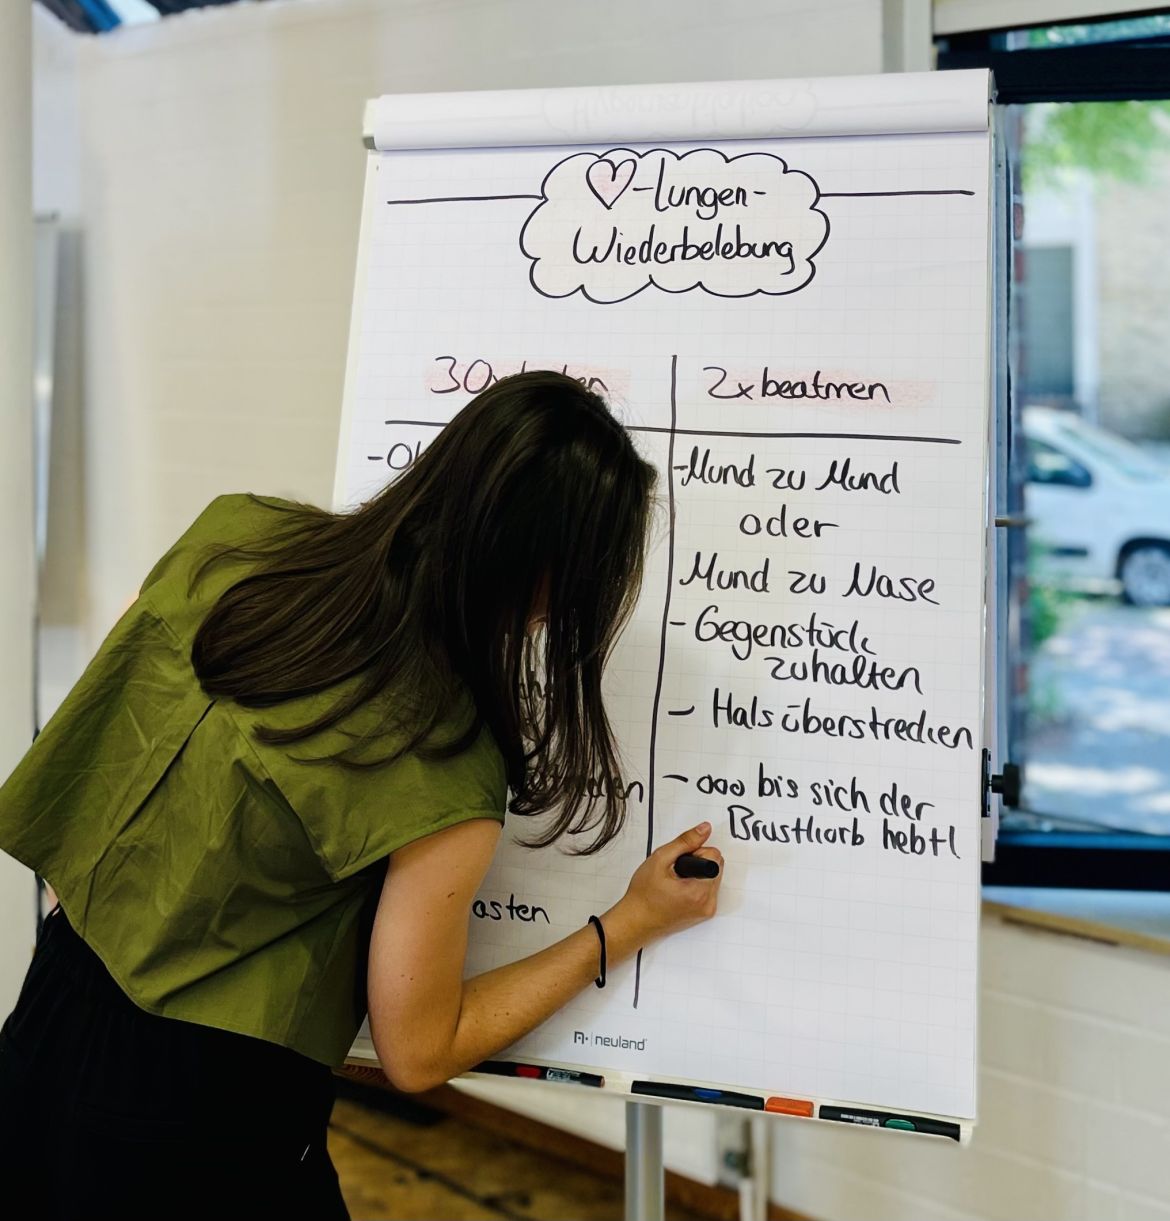 ♡-Lungen-
Wiederbelebung
2x beatmen
-Mund zu Mund
oder
Mund zu Nase
- Gegenstück
zuhalten
- Hals überstrecken
- ooo bis sich der
Brustkorb hebt!
neuland